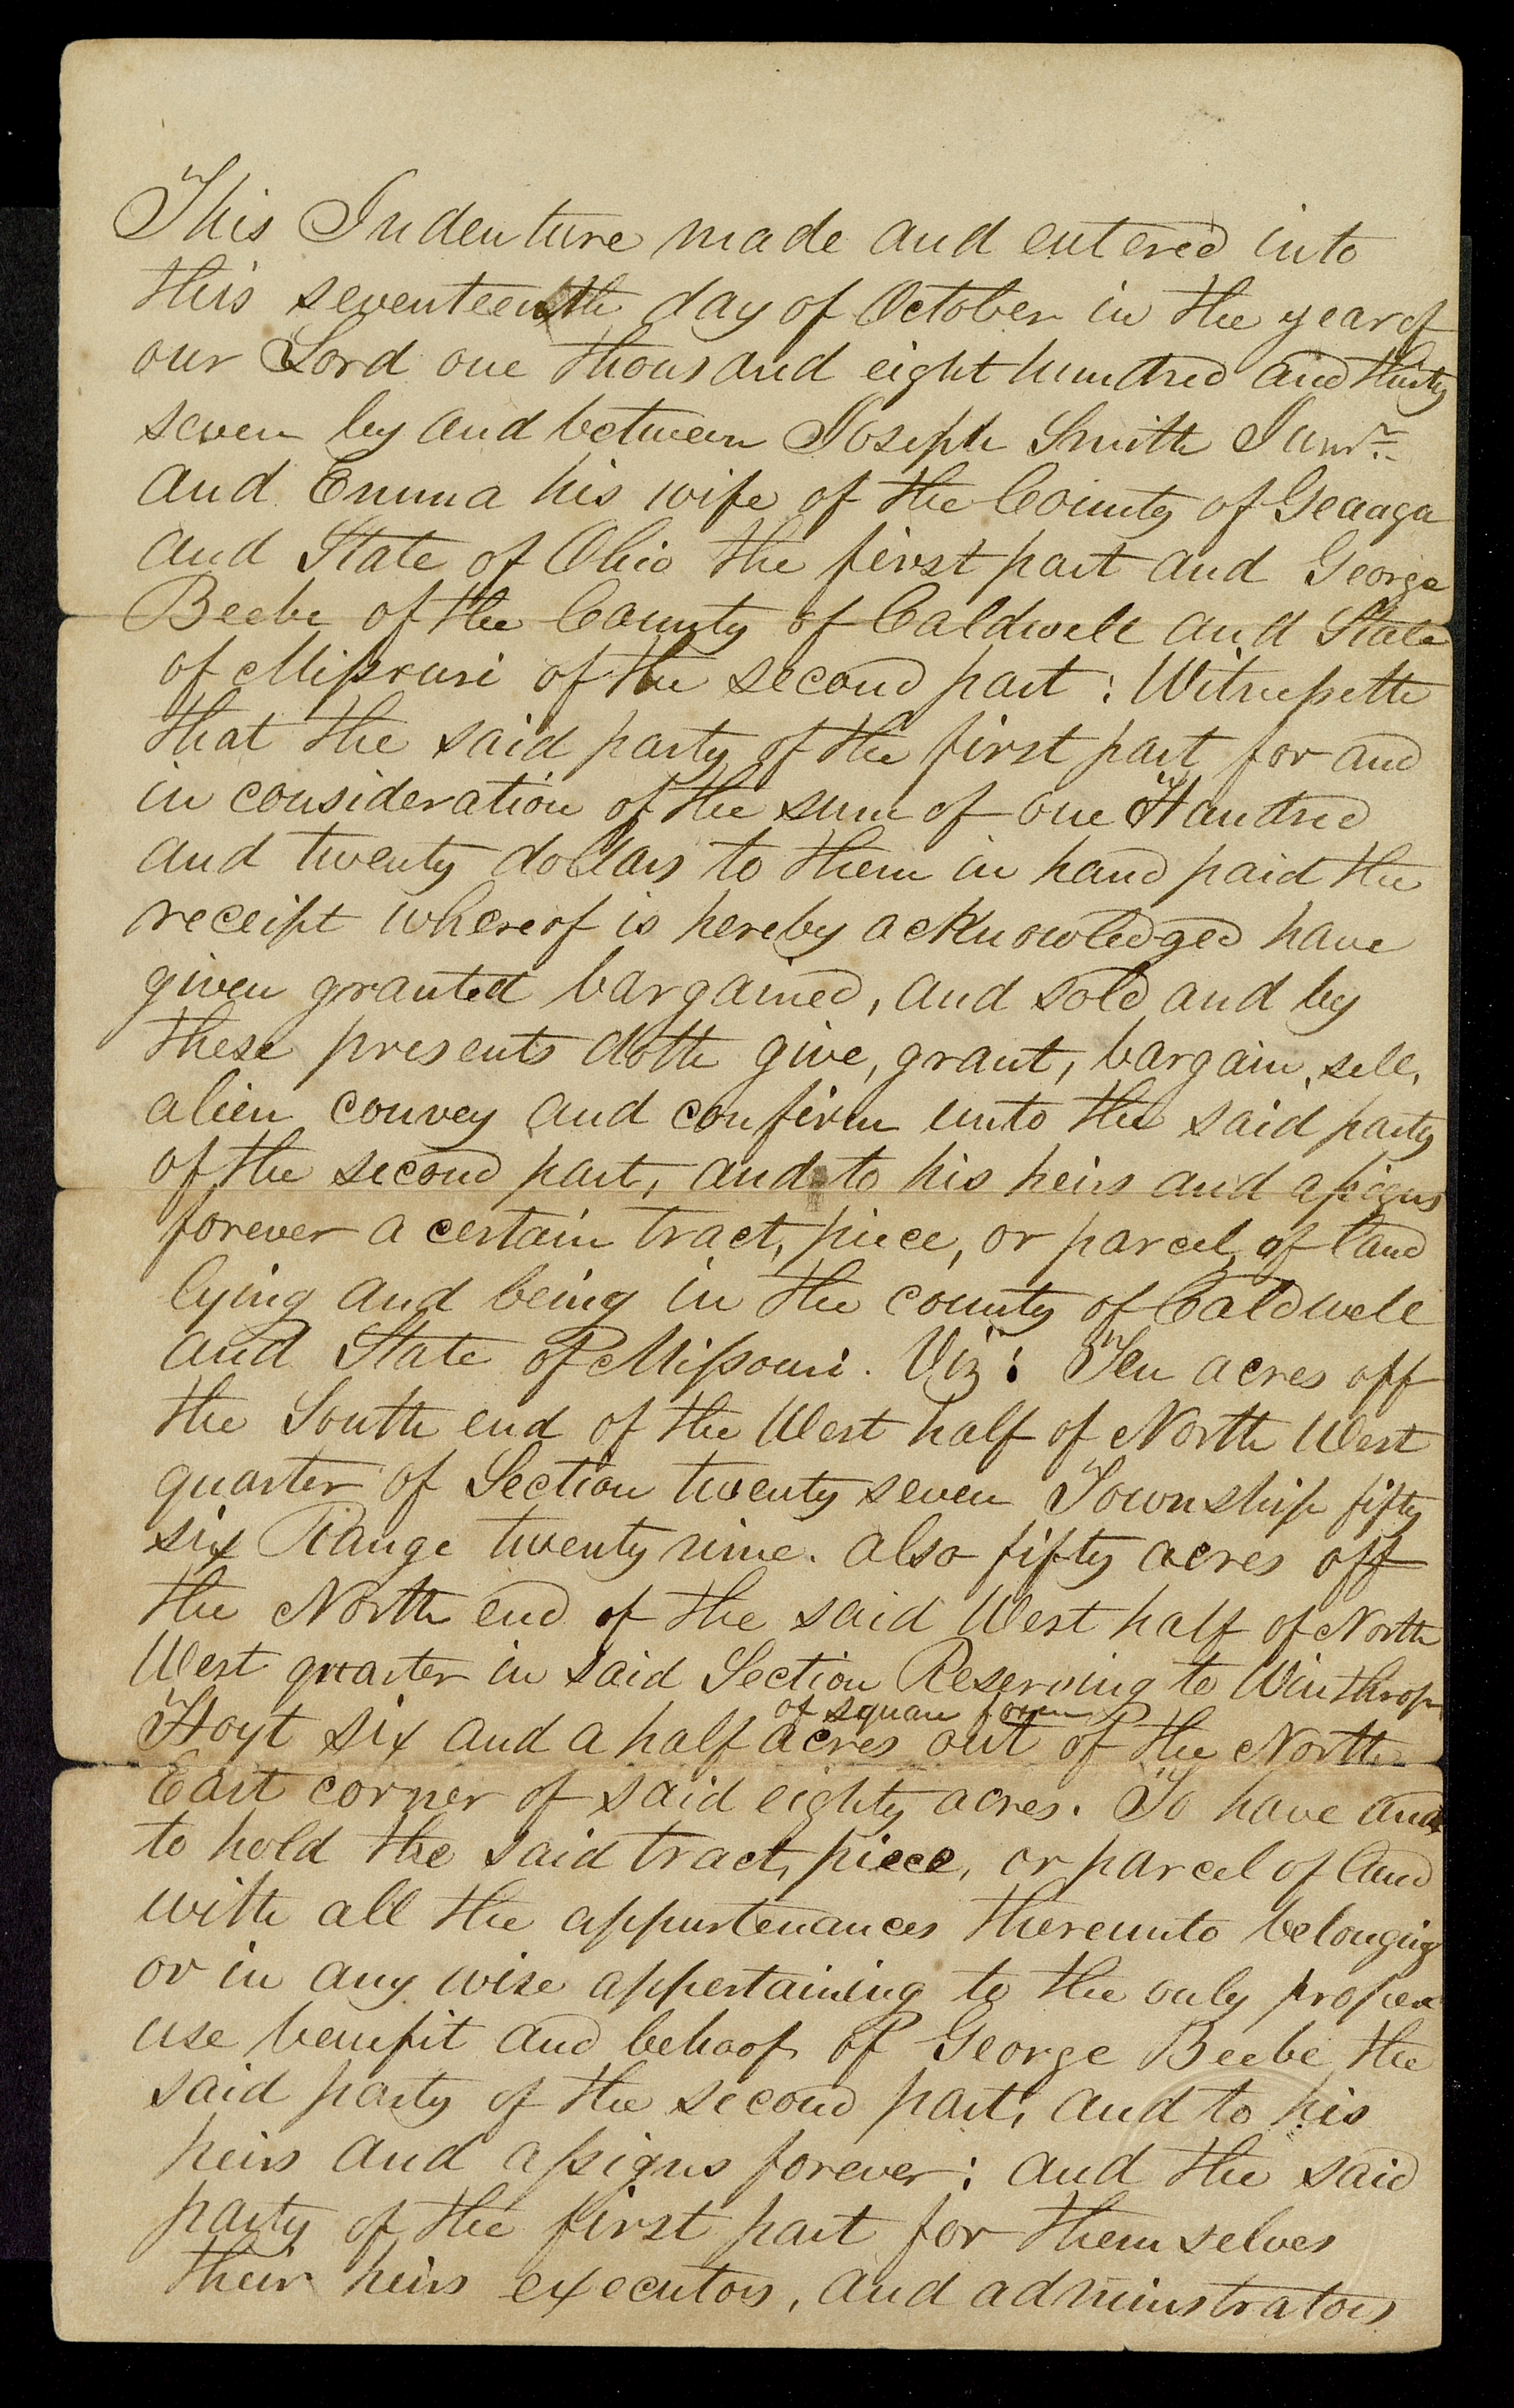 This Indenture made and entered into
this seventeenth day of October in the year of
our Lord one thousand eight hundred and thirty
seven by and between Joseph Smith Junr.
and Emma his wife of the County of Geauga
and State of Ohio the first part and George
Beebe of the County of Caldwell and State
of Missouri of the second part: Witnesseth
that the said party of the first part for and
in consideration of the sum of one Hundred
and twenty dollars to them in hand paid the
receipt whereof is hereby acknowledged have
given granted bargained, and sold and by
these presents doth give, grant, bargain, sell,
alien convey and confirm unto the said party
of the second part, and to his heirs and assigns
forever a certain tract, piece, or parcel of land
lying and being in the county of Caldwell
and State of Missouri. Viz: Ten acres off
the South end of the West half of North West
quarter of Section twenty seven Township fifty
six Range twenty nine. also fifty acres off
the North end of the said West half of North
West quarter in said Section Reserving to Winthrop
of square form
Hoyt six and a half acres out of the North
East corner of said eighty acres. To have and
to hold the said tract, piece, or parcel of land
with all the appurtenances thereunto belonging
or in any wise appertaining to the only proper
use benefit and behoof of George Beebe the
said party of the second part, and to his
heirs and assigns forever: and the said
party of the first part for themselves
their heirs executors, and adminstrators